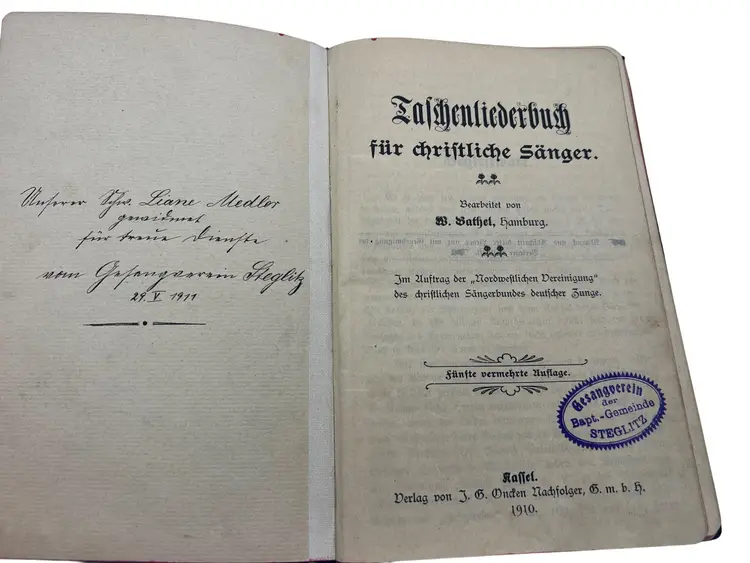 Unserer Schw. Liane Medler
gewidmet
für treue Dienste
vom Gesangverein Steglitz
29. V. 1911
Taschenliederbuch
für christliche Sänger.
Bearbeitet von
W. Bathel, Hamburg.
Im Auftrag der „Nordwestlichen Vereinigung“
des christlichen Sängerbundes deutscher Zunge.
Fünfte vermehrte Auflage.
Gesangverein
der
Bapt.-Gemeinde
STEGLITZ
Kassel.
Verlag von J. G. Oncken Nachfolger, G. m. b. H.
1910.